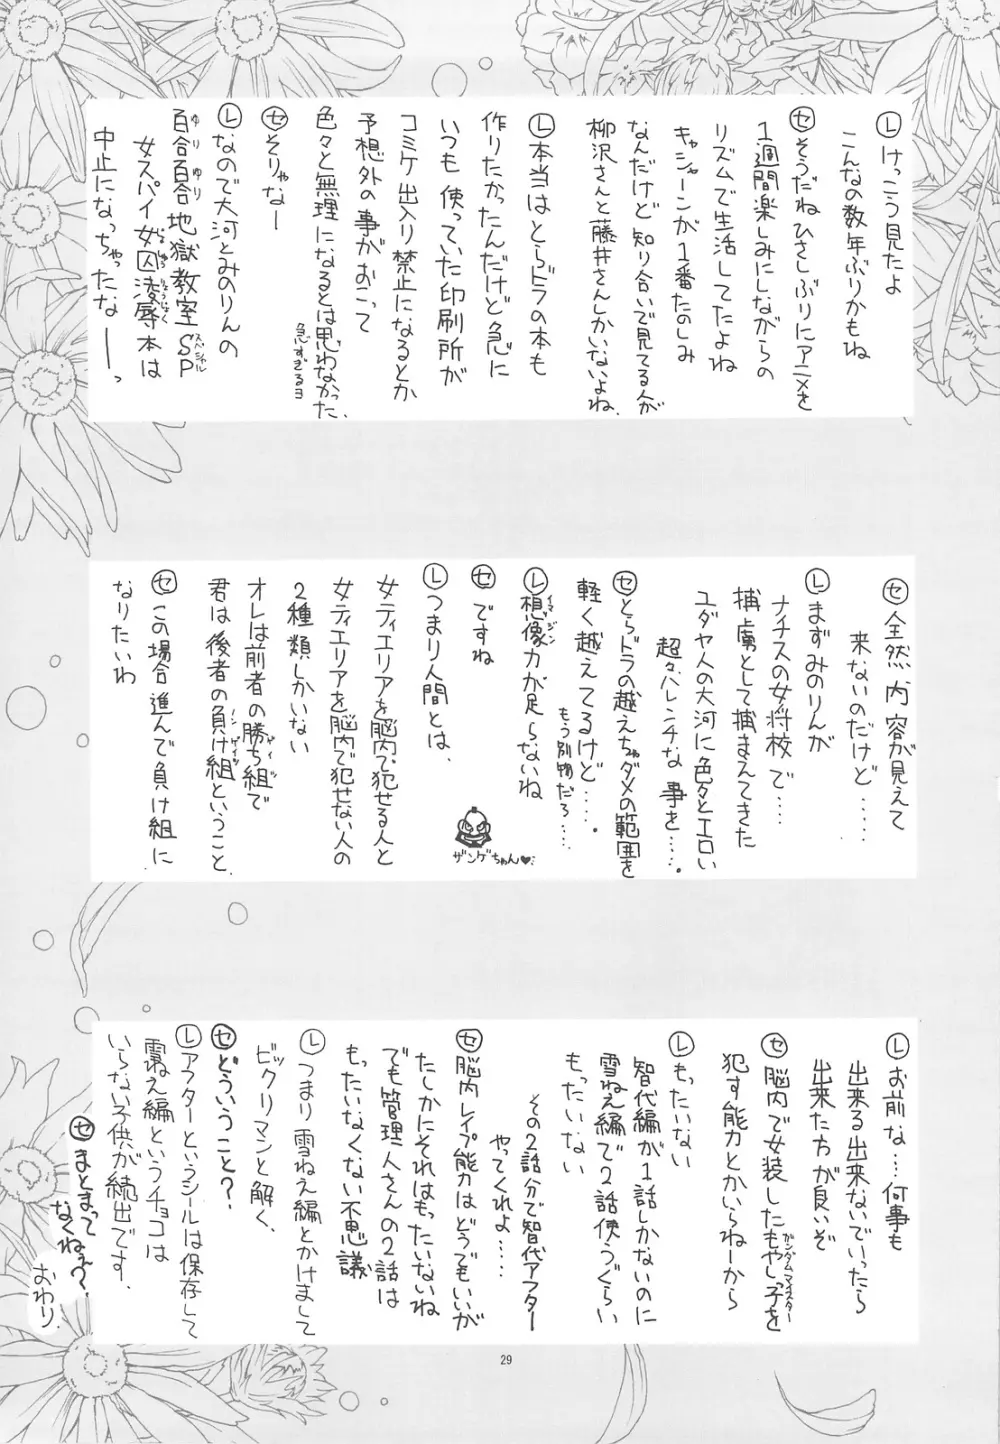 Ⓛけっこう見たよ
こんなの数年ぶりかもね
㋝そうだねひさしぶりにアニメを
1週間楽しみにしながらの
リズムで生活してたよね
キャシャーンが1番たのしみ
なんだけど知り合いで見てる人が
柳沢さんと藤井さんしかいないよね、
Ⓛ本当はとらドラの本も
作りたかったんだけど急に
いつも使っていた印刷所が
コミケ出入り禁止になるとか
予想外の事がおこって
色々と無理になるとは思わなかった、
急すぎるヨ
㋝そりゃなー
Ⓛなので大河とみのりんの
百合百合地獄教室SP
ゆりゆり
スペシャル
女スパイ女囚凌辱本は
じょしゅうりょうじょく
中止になっちゃったなーっ
㋝全然内容が見えて
来ないのだけど……
Ⓛまずみのりんが
ナチスの女将校で…
捕虜として捕まえてきた
ユダヤ人の大河に色々とエロい
超々ハレンチな事を……
㋝とらドラの越えちゃダメの範囲を
軽く越えてるけど…
もう別物だろ……
Ⓛ想像力が足らないね
イマジン
㋝ですね
Ⓛつまり人間とは、
女ティエリアを脳内で犯せる人と
女ティエリアを脳内で犯せない人の
2種類しかいない
オレは前者の勝ち組で
君は後者の負け組ということ
㋝この場合進んで負け組に
なりたいわ
ザンゲちゃん♥…
Ⓛお前な…何事も
出来る出来ないでいったら
出来た方が良いぞ
㋝脳内で女装したもやしっ子を
ガンダムマイスター
犯す能力とかいらねーから
Ⓛもったいない
智代編が1話しかないのに
雪ねえ編で2話使うぐらい
もったいない
その2話分で智代アフター
やってくれよ……
㋝脳内レイプ能力はどうでもいいが
たしかにそれはもったいないね
でも管理人さんの2話は
もったいなくない不思議
Ⓛつまり雪ねえ編とかけまして
ビックリマンと解く、
㋝どういうこと?
Ⓛアフターというシールは保存して
雪ねえ編というチョコは
いらない子供が続出です、
㋝まとまって
なくねぇ?
おわり
29